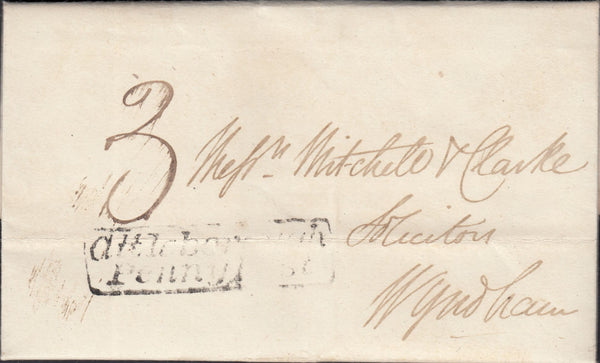 3
Messrs Mitchell & Clarke
Solicitors
Wyndham
Attleborough
Penny Post